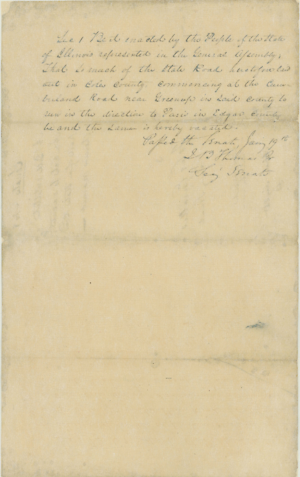 Sec 1 Be it enacted by the People of the State
of Illinois represented in the General Assembly,
That so much of the State Road as
out in Coles County Commencing at the Cum-
berland Road near Greenup in said County to
run in the direction to Paris in Edgar County
be and the same is hereby
Passed the Senate Jany 19th
Secy Senate